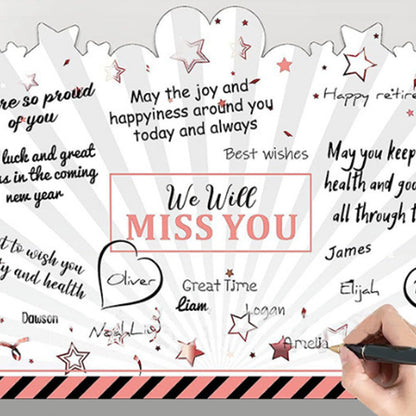 re so proud
of you
May the joy and
happiness around you
today and always
Happy retire
Best wishes
luck and great
ss in the coming
new year
May you keep
health and goo
all through t
We Will
MISS YOU
t to wish you
ty and health
Oliver
Great Time
Liam
Logan
James
Elijah
Dawson
Noah Lio
Amelia